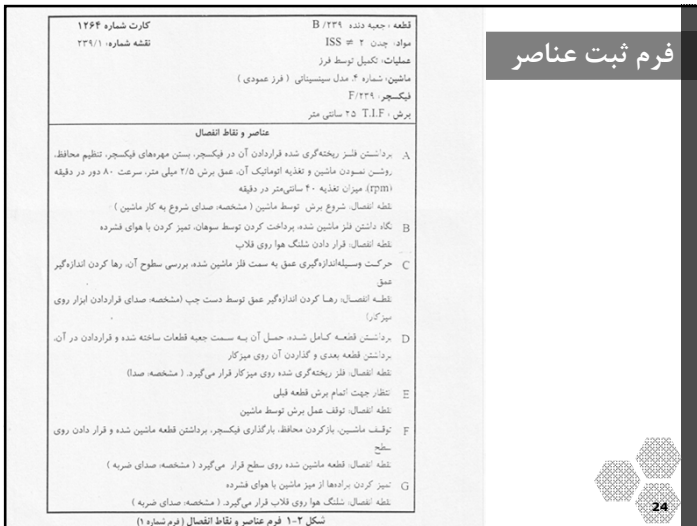 فرم ثبت عناصر
قطعه : جعبه دنده B /۲۳۹ کارت شماره ۱۲۶۴
مواد: چدن ISS ≠ ۲ نقشه شماره: ۲۳۹/۱
عملیات: تکمیل توسط فرز
ماشین: شماره ۴. مدل سینسیناتی ( فرز عمودی )
فیکسچر: F/۲۳۹
برش : T.I.F ۲۵ سانتی متر
عناصر و نقاط انفصال
A برداشتن فلز ریخته‌گری شده قراردادن آن در فیکسچر، بستن مهره‌های فیکسچر، تنظیم محافظ،
روشن نمودن ماشین و تغذیه اتوماتیک آن، عمق برش ۲/۵ میلی متر، سرعت ۸۰ دور در دقیقه
(rpm)، میزان تغذیه ۴۰ سانتی‌متر در دقیقه
نقطه انفصال: شروع برش توسط ماشین ( مشخصه: صدای شروع به کار ماشین )
B نگاه داشتن فلز ماشین شده، پرداخت کردن توسط سوهان، تمیز کردن با هوای فشرده
نقطه انفصال: قرار دادن شلنگ هوا روی قلاب
C حرکت وسیله‌اندازه‌گیری عمق به سمت فلز ماشین شده، بررسی سطوح آن، رها کردن اندازه‌گیر
عمق
نقطه انفصال: رها کردن اندازه‌گیر عمق توسط دست چپ (مشخصه: صدای قراردادن ابزار روی
میزکار)
D برداشتن قطعه کامل شده، حمل آن به سمت جعبه قطعات ساخته شده و قراردادن در آن،
برداشتن قطعه بعدی و گذاردن آن روی میزکار
نقطه انفصال: فلز ریخته‌گری شده روی میزکار قرار می‌گیرد. ( مشخصه: صدا)
E انتظار جهت اتمام برش قطعه قبلی
نقطه انفصال: توقف عمل برش توسط ماشین
F توقف ماشین، بازکردن محافظ، بارگذاری فیکسچر، برداشتن قطعه ماشین شده و قرار دادن روی
سطح
نقطه انفصال: قطعه ماشین شده روی سطح قرار می‌گیرد ( مشخصه: صدای ضربه )
G تمیز کردن براده‌ها از میز ماشین با هوای فشرده
نقطه انفصال: شلنگ هوا روی قلاب قرار می‌گیرد. ( مشخصه: صدای ضربه )
شکل ۲-۱ فرم عناصر و نقاط انفصال ( فرم شماره ۱)
24